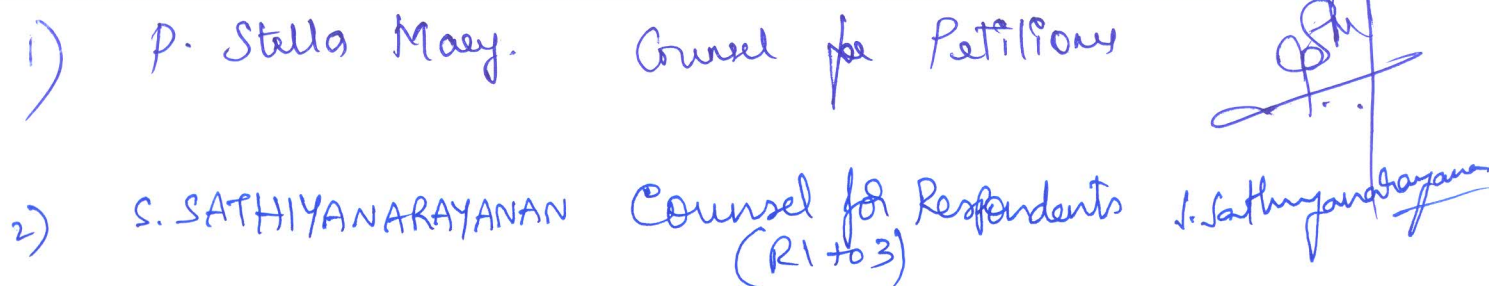 1) P. Stella Mary. Counsel for Petitions
2) S. SATHIYANARAYANAN Counsel for Respondents S. Sathiyanarayanan
(R1 to 3)